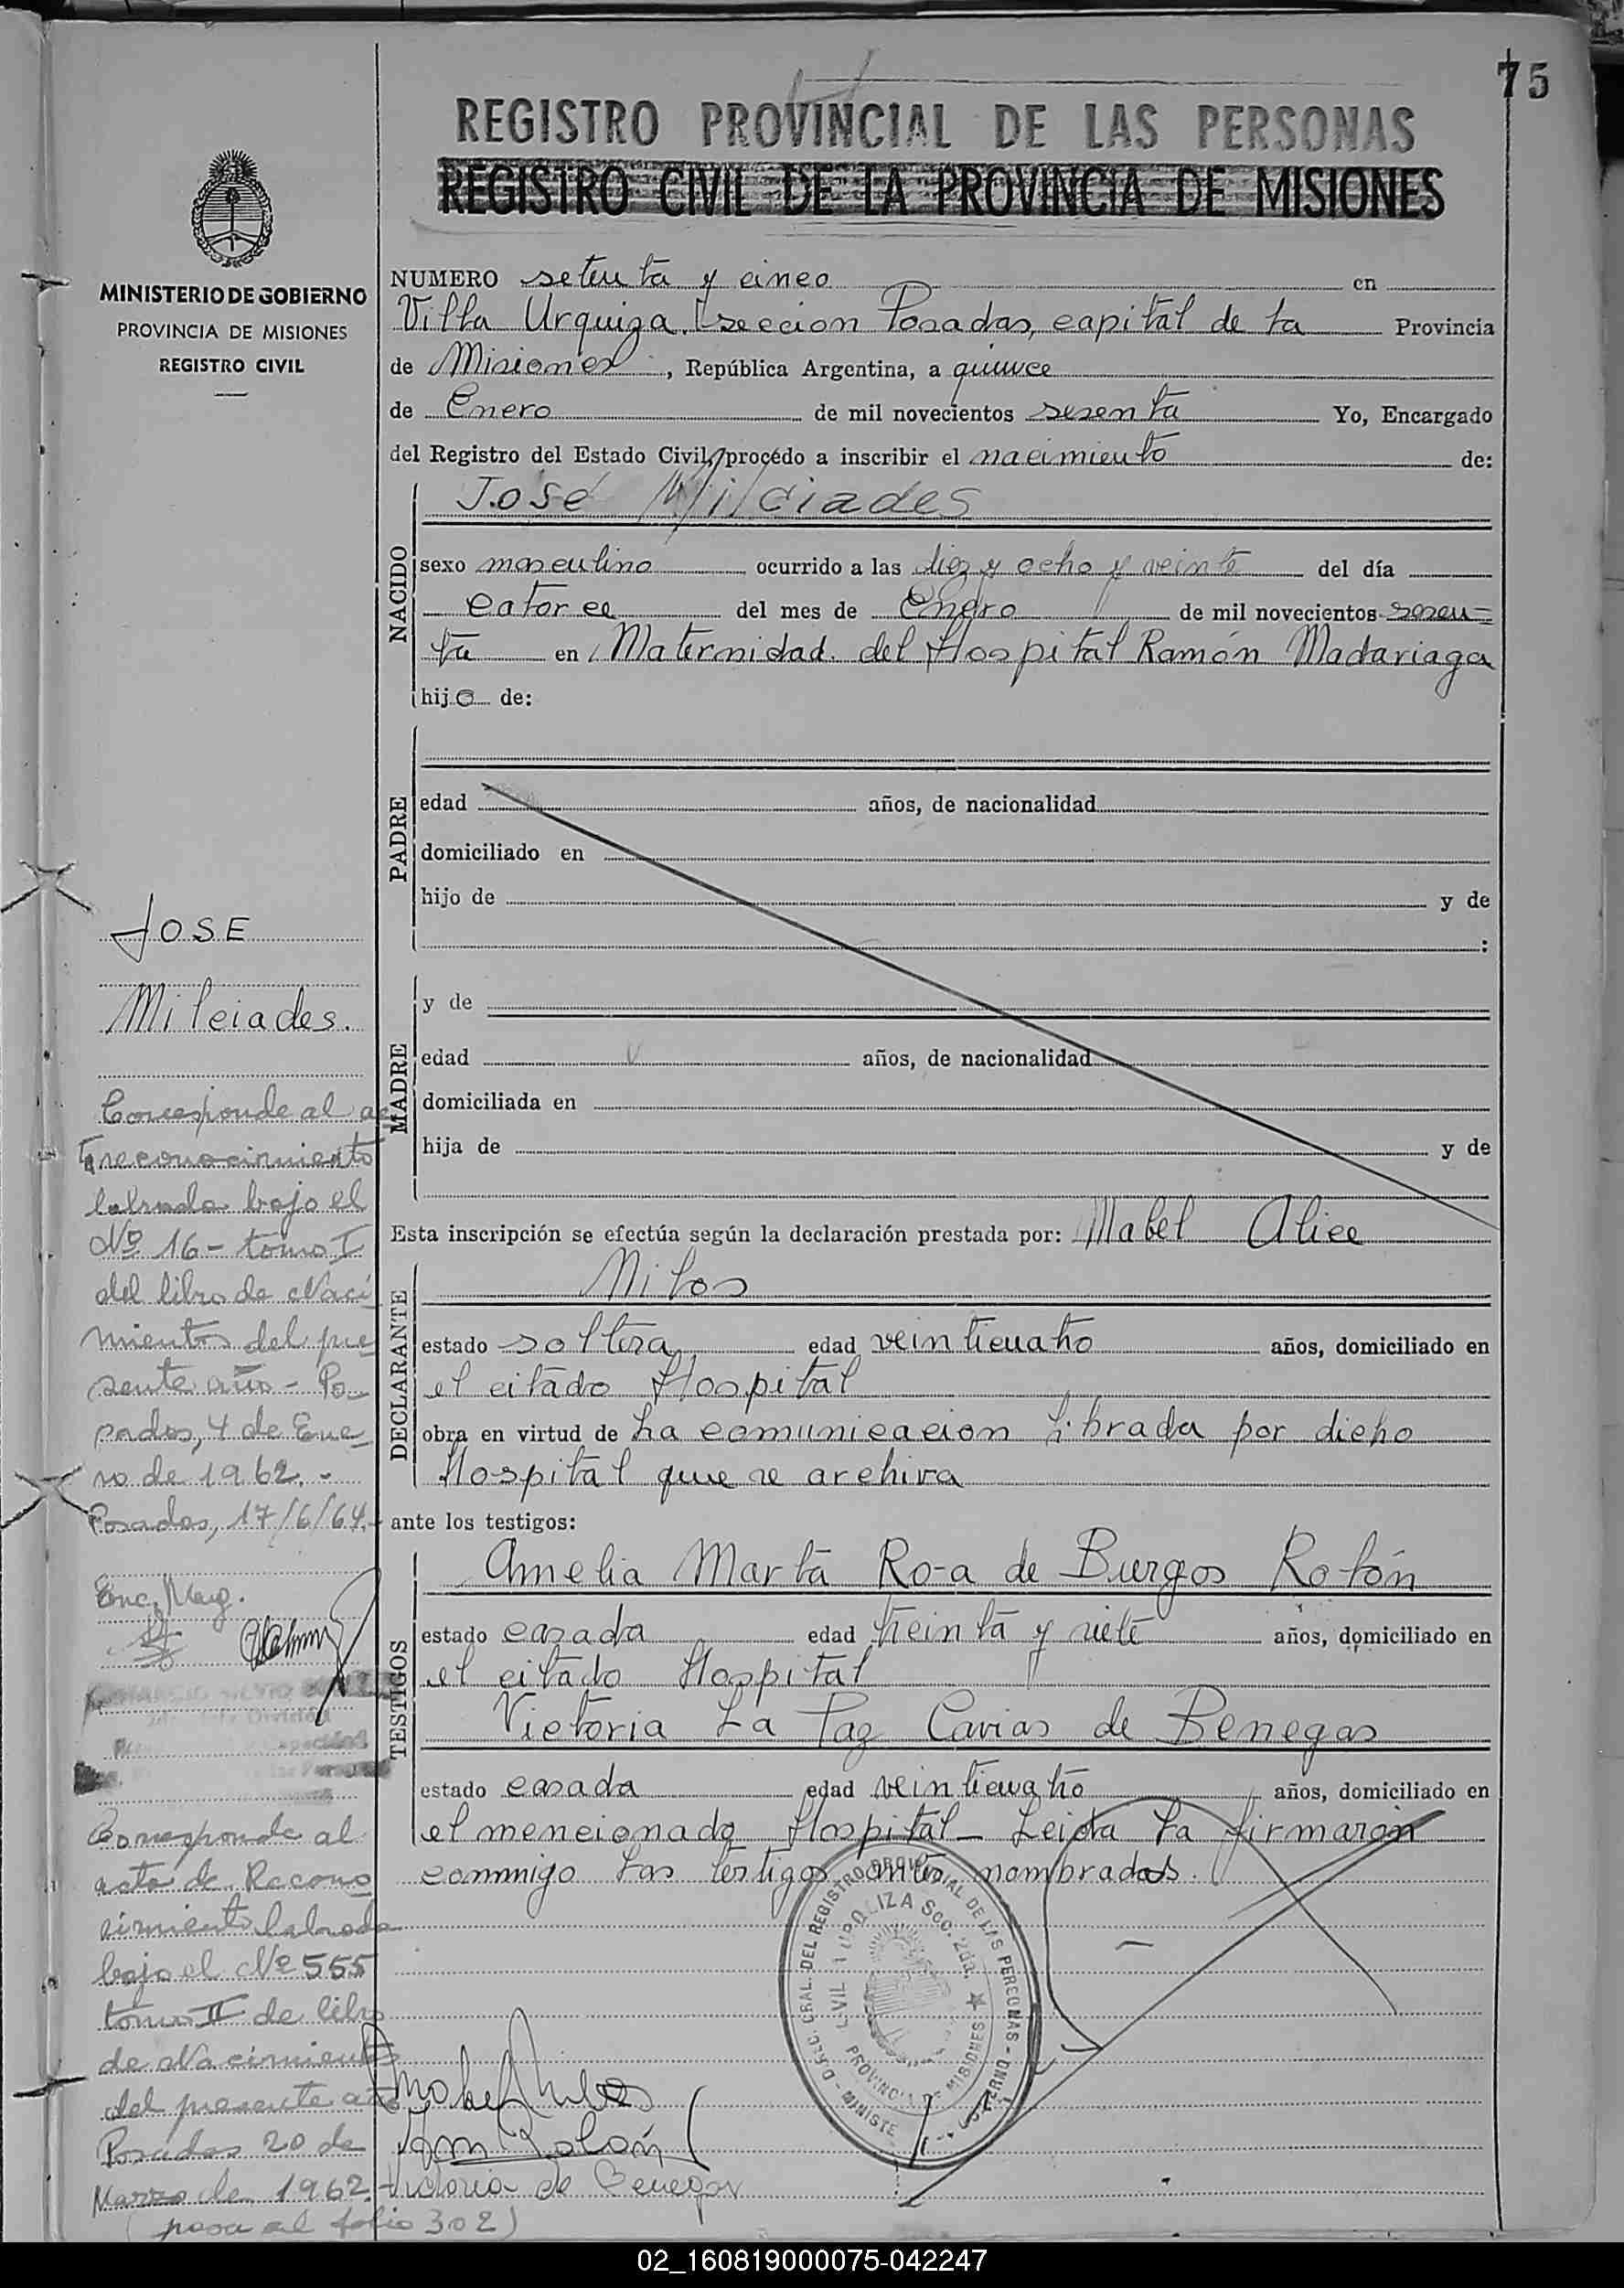 75
REGISTRO PROVINCIAL DE LAS PERSONAS
REGISTRO CIVIL DE LA PROVINCIA DE MISIONES
MINISTERIO DE GOBIERNO
PROVINCIA DE MISIONES
REGISTRO CIVIL
NUMERO setenta y cinco en
Villa Urquiza, seccion Posadas, capital de la Provincia
de Misiones, República Argentina, a quince
de Enero de mil novecientos sesenta Yo, Encargado
del Registro del Estado Civil, procedo a inscribir el nacimiento de:
NACIDO
José Milciades
sexo masculino ocurrido a las diez y ocho y veinte del día
catorce del mes de Enero de mil novecientos sesen-
ta en Maternidad del Hospital Ramón Madariaga
hijo de:
PADRE
edad años, de nacionalidad
domiciliado en
hijo de y de
:
MADRE
y de
edad años, de nacionalidad
domiciliada en
hija de y de
Esta inscripción se efectúa según la declaración prestada por: Mabel Alice
DECLARANTE
Milos
estado soltera edad veinticuatro años, domiciliado en
el citado Hospital
obra en virtud de la comunicacion librada por dicho
Hospital que se archiva
ante los testigos:
TESTIGOS
Amelia Marta Roa de Burgos Rolón
estado casada edad treinta y siete años, domiciliado en
el citado Hospital
Victoria La Paz Carias de Benegas
estado casada edad veinticuatro años, domiciliado en
el mencionado Hospital - Leida la firmaron
conmigo las testigos antes nombradas.
Victoria de Benegas
JOSE
Milciades.
Corresponde al ac
ta reconocimiento
labrada bajo el
Nº 16 - tomo I
del libro de Naci
mientos del pre
sente año - Po-
sadas, 4 de Ene-
ro de 1962.-
Posadas, 17/6/64.-
Enc. Marg.
Corresponde al
acta de Recono
cimiento labrada
bajo el Nº 555
tomo II de libro
de Nacimientos
del presente año
Posadas 20 de
Marzo de 1962.
(pasa al folio 302)
02_160819000075-042247